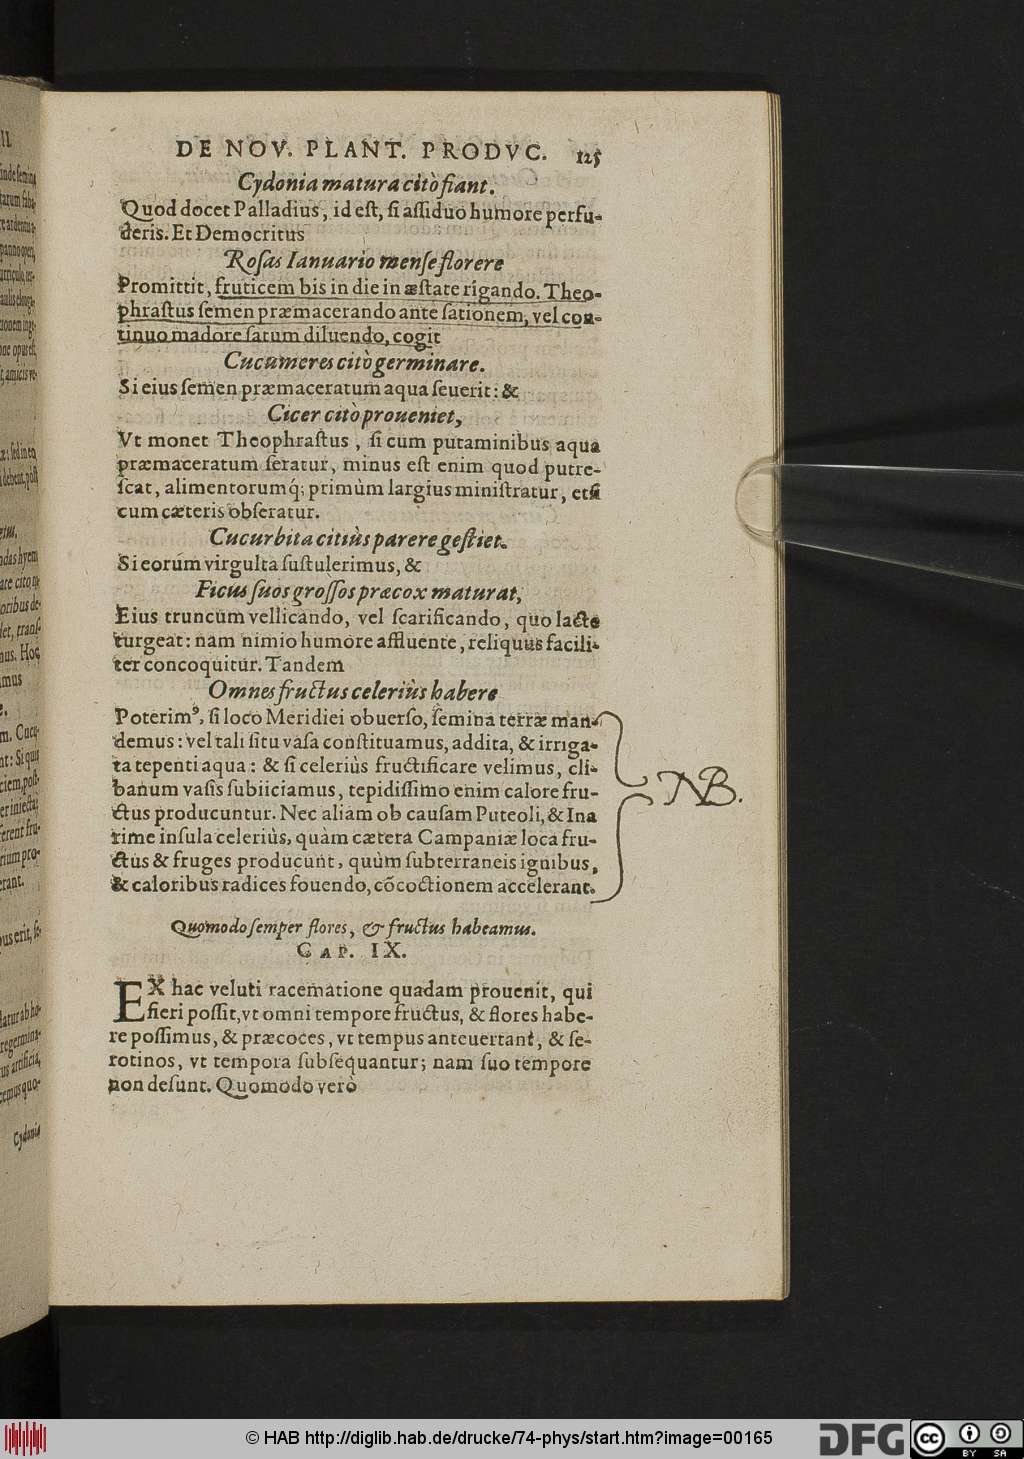 DE NOV. PLANT. PRODVC. 125
Cydonia matura citò fiant.
Quod docet Palladius, id eſt, ſi aſſiduo humore perfu-
deris. Et Democritus
Roſas Ianuario menſe florere
Promittit, fruticem bis in die in æſtate rigando. Theo-
phraſtus ſemen præmacerando ante ſationem, vel con-
tinuo madore ſatum diluendo, cogit
Cucumeres citò germinare.
Si eius ſemen præmaceratum aqua ſeuerit: &
Cicer citò proueniet,
Vt monet Theophraſtus, ſi cum putaminibus aqua
præmaceratum ſeratur, minus eſt enim quod putre-
ſcat, alimentorumq́; primùm largius miniſtratur, etſi
cum cæteris obſeratur.
Cucurbita citiùs parere geſtiet.
Si eorum virgulta ſuſtulerimus, &
Ficus ſuos groſſos præcox maturat,
Eius truncum vellicando, vel ſcarificando, quo lacte
turgeat: nam nimio humore affluente, reliquus facili-
ter concoquitur. Tandem
Omnes fructus celeriùs habere
Poterimꝰ, ſi loco Meridiei obuerſo, ſemina terræ man-
demus: vel tali ſitu vaſa conſtituamus, addita, & irriga-
ta tepenti aqua: & ſi celeriùs fructificare velimus, cli-
banum vaſis ſubiiciamus, tepidiſſimo enim calore fru-
ctus producuntur. Nec aliam ob cauſam Puteoli, & Ina
rime inſula celeriùs, quàm cætera Campaniæ loca fru-
ctus & fruges producunt, quùm ſubterraneis ignibus,
& caloribus radices fouendo, cōcoctionem accelerant.
NB.
Quomodo ſemper flores, & fructus habeamus.
CAP. IX.
EX hac veluti racematione quadam prouenit, qui
fieri poſſit, vt omni tempore fructus, & flores habe-
re poſſimus, & præcoces, vt tempus anteuertant, & ſe-
rotinos, vt tempora ſubſequantur; nam ſuo tempore
non deſunt. Quomodo verò
© HAB http://diglib.hab.de/drucke/74-phys/start.htm?image=00165
DFG
cc BY SA